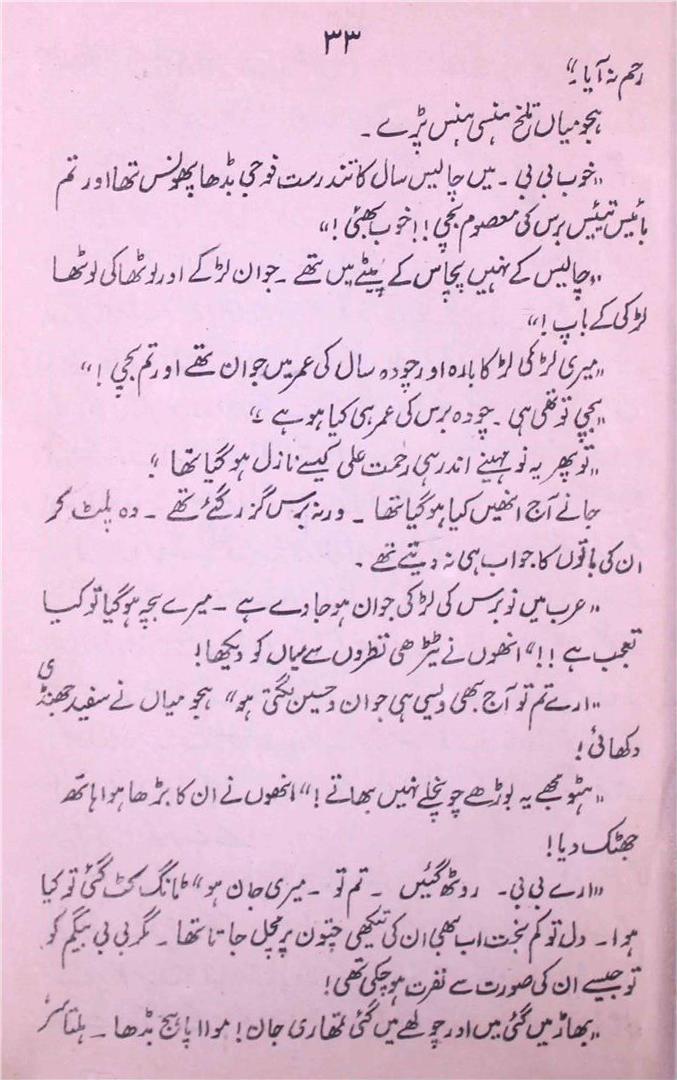 ۳۳
رحم نہ آیا۔"
ہجو میاں تلخ ہنسی ہنس پڑے ۔
"خوب بی بی ۔ میں چالیس سال کا تندرست فوجی بڈھا پھونس تھا اور تم
بائیس تیئیس برس کی معصوم بچی !! خوب بھئی !"
"چالیس کے نہیں پچاس کے پیٹے میں تھے ۔ جوان لڑکے اور لوٹھا کی لوٹھا
لڑکی کے باپ !"
"میری لڑکی لڑکا بارہ اور چودہ سال کی عمر میں جوان تھے اور تم بچی !"
"بچی تو تھی ہی ۔ چودہ برس کی عمر ہی کیا ہو ہے ۔"
"تو پھر یہ نو مہینے اندر ہی رحمت علی کیسے نازل ہو گیا تھا ؟
جانے آج انھیں کیا ہو گیا تھا ۔ ورنہ برس گزر گئے تھے ۔ وہ پلٹ کر
ان کی باتوں کا جواب ہی نہ دیتے تھے ۔
"عرب میں نو برس کی لڑکی جوان ہو جاوے ہے ۔ میرے بچہ ہو گیا تو کیا
تعجب ہے !!" انھوں نے ٹیڑھی نظروں سے میاں کو دیکھا !
"ارے تم تو آج بھی ویسی ہی جوان و حسین لگتی ہو" ہجو میاں نے سفید جھنڈی
دکھائی !
"ہٹو مجھے یہ بوڑھے چونچلے نہیں بھاتے !" انھوں نے ان کا بڑھا ہوا ہاتھ
جھٹک دیا !
"ارے بی بی ۔ روٹھ گئیں ۔ تم تو ۔ میری جان ہو" ٹانگ کٹ گئی تو کیا
ہوا ۔ دل تو کم بخت اب بھی ان کی تیکھی چتون پر مچل جاتا تھا ۔ مگر بی بی بیگم کو
تو جیسے ان کی صورت سے نفرت ہو چکی تھی !
"بھاڑ میں گئی میں اور چولھے میں گئی تمھاری جان ! موا اپاہج بڈھا ۔ ہلتا سر